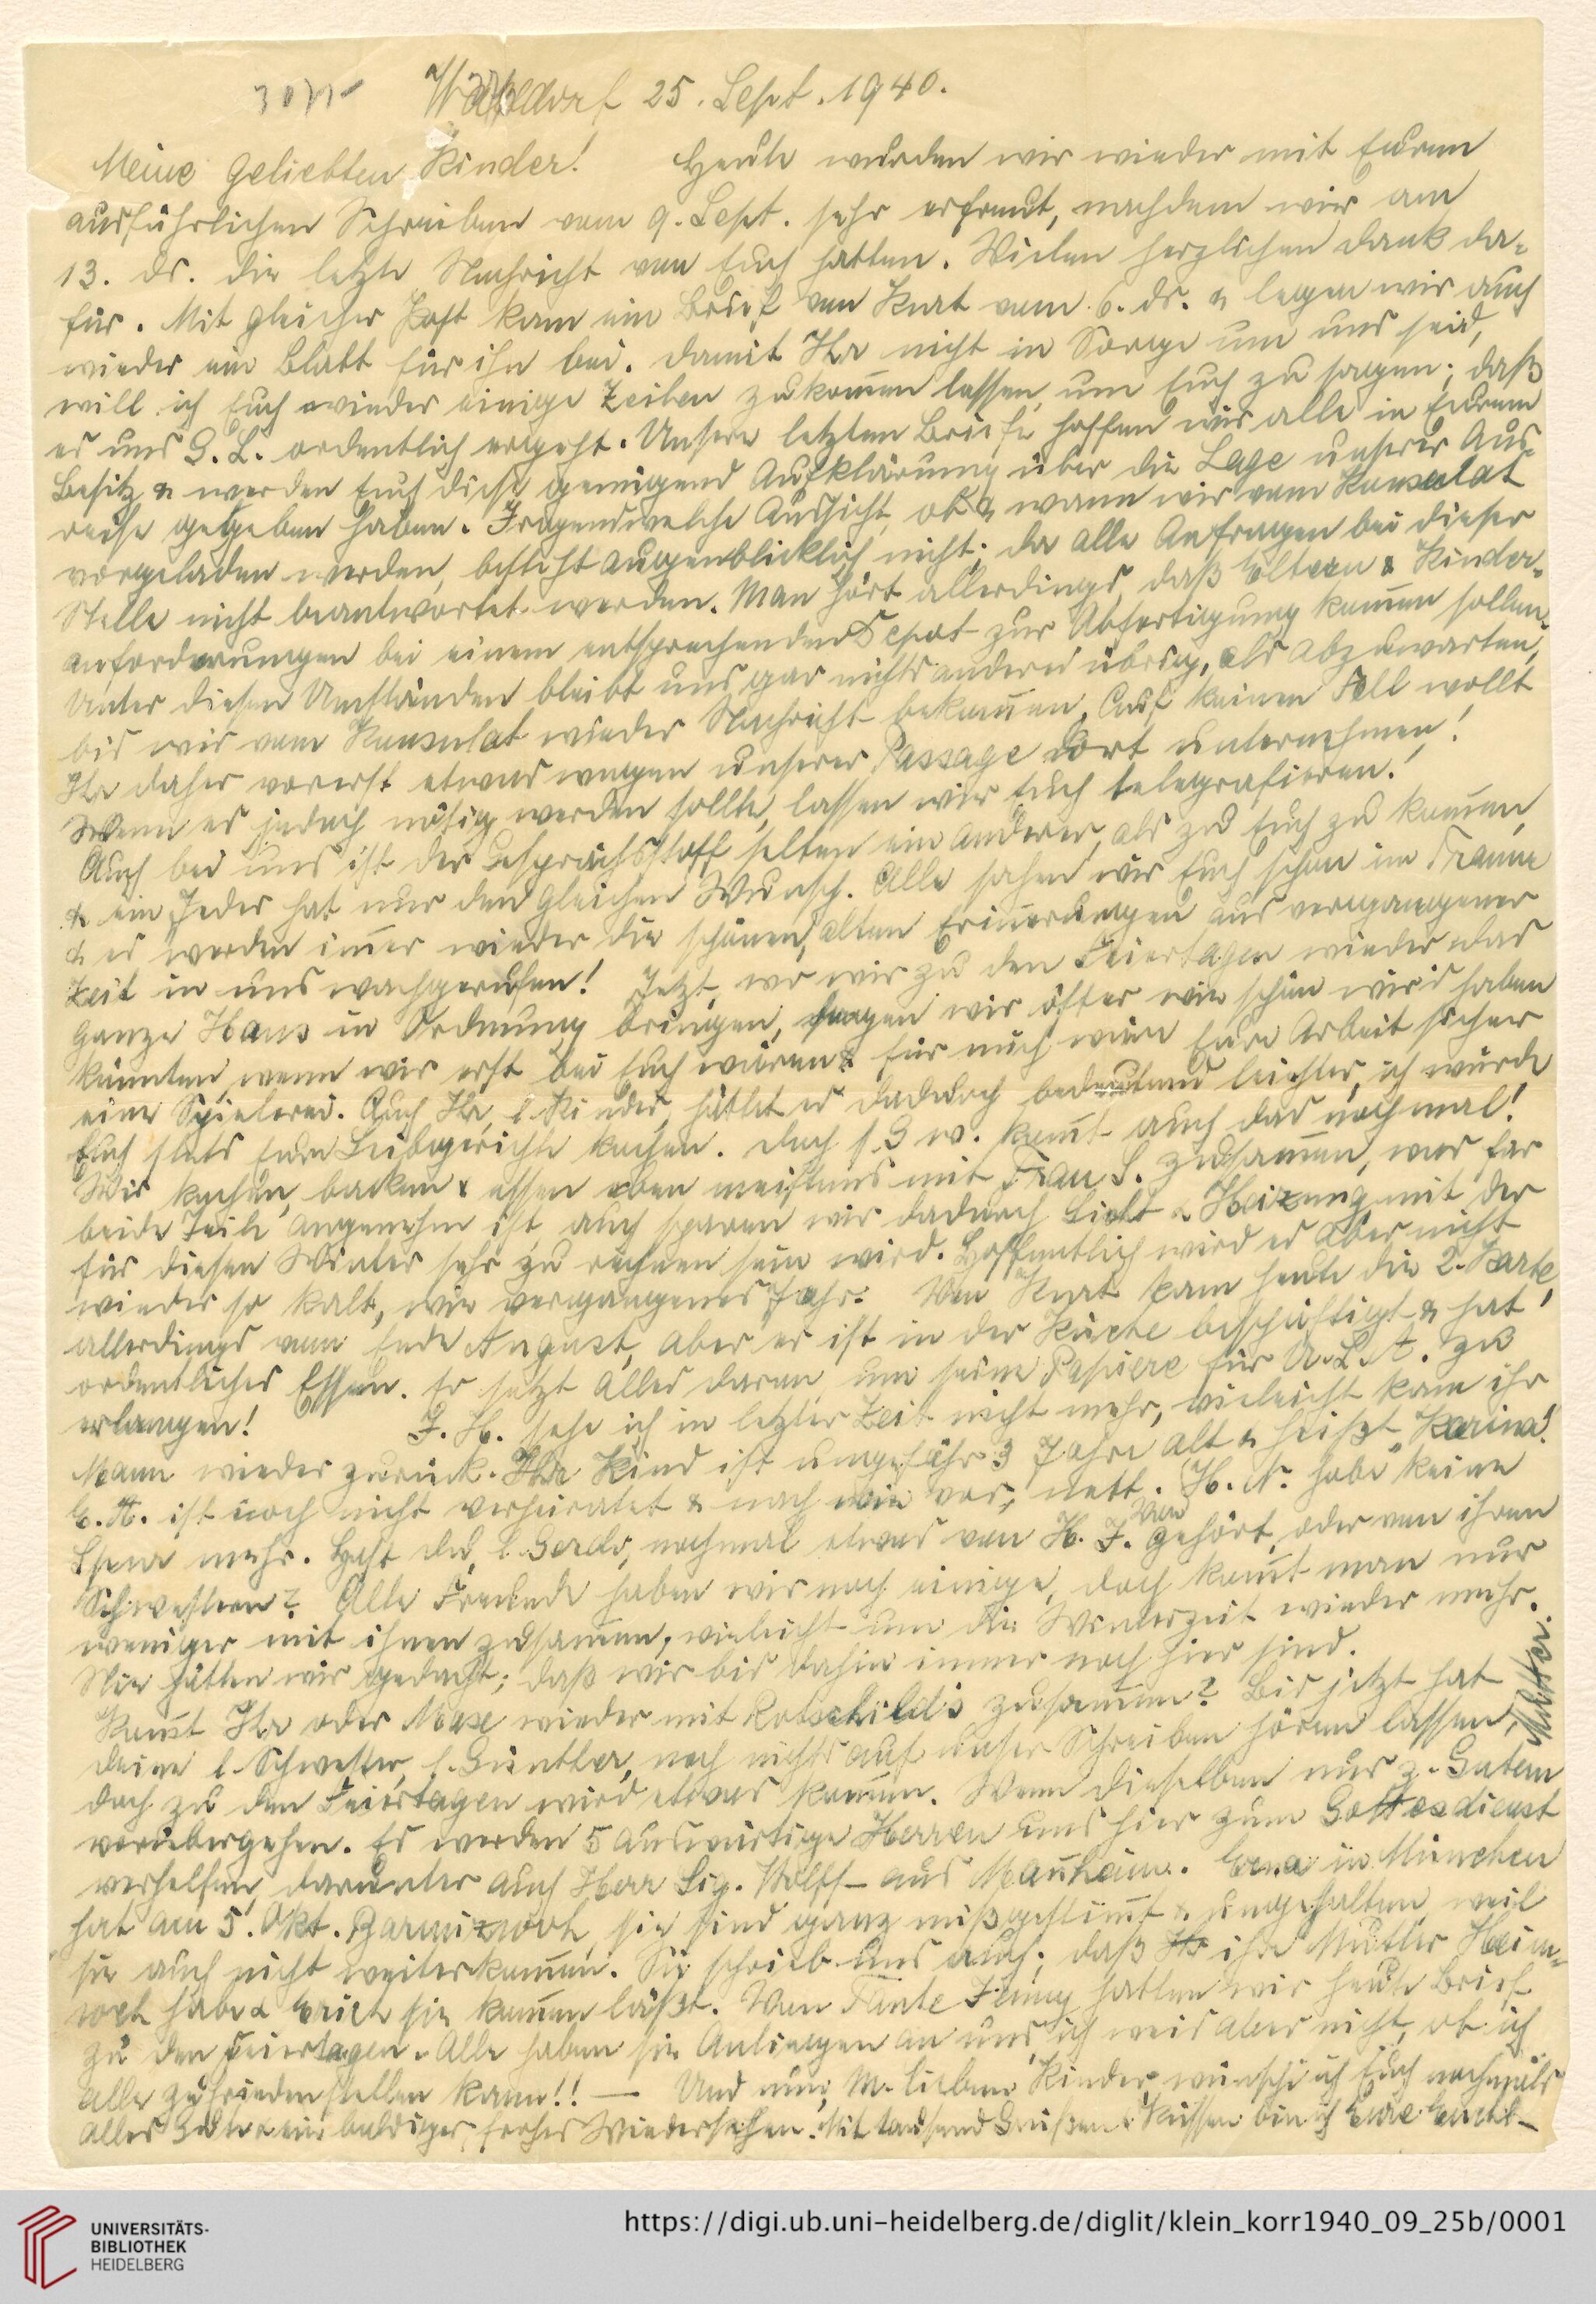 Walldorf 25. Sept. 1940.
Meine geliebten Kinder! Heute wurden wir wieder mit Eurem
ausführlichen Schreiben vom 9. Sept. sehr erfreut, nachdem wir am
13. ds. die letzte Nachricht von Euch hatten. Vielen herzlichen Dank da-
für. Mit gleicher Post kam ein Brief von Kurt vom 6. ds. & legen wir auch
wieder ein Blatt für ihn bei. Damit Ihr nicht in Sorge um uns seid,
will ich Euch wieder einige Zeilen zukom̅en lassen, um Euch zu sagen, daß
es uns G. L. ordentlich ergeht. Unsere letzten Briefe hoffen wir alle in Eurem
Besitz & werden Euch diese genügend Aufklärung über die Lage unserer Aus-
reise gegeben haben. Irgendwelche Aussicht, ob & wann wir vom Konsulat
vorgeladen werden, besteht augenblicklich nicht, da alle Anfragen bei dieser
Stelle nicht beantwortet werden. Man hört allerdings, daß Eltern & Kinder-
anforderungen bei einem entsprechenden Depot zur Abfertigung kom̅en sollen.
Unter diesen Umständen bleibt uns gar nichts anderes übrig, als abzuwarten,
bis wir vom Konsulat wieder Nachricht bekom̅en. Auf keinen Fall wollt
Ihr daher vorerst etwas wegen unserer Passage dort unternehmen!
Wenn es jedoch nötig werden sollte, lassen wir Euch telegrafieren!
Auch bei uns ist der Gesprächsstoff selten ein anderer, als zu Euch zu kom̅en,
& ein Jeder hat nur den gleichen Wunsch. Alle sahen wir Euch schon im Traume
& es werden im̅er wieder die schönen, alten Erin̅erungen aus vergangener
Zeit in uns wachgerufen! Jetzt, wo wir zu den Feiertagen wieder das
ganze Haus in Ordnung bringen, sagen wir öfter wie schön wir's haben
könnten, wenn wir erst bei Euch wären & für mich wäre Eure Arbeit sicher
eine Spielerei. Auch Ihr, l. Kinder, hättet es dadurch bedeutend leichter, ich würde
Euch stets Eure Leibgerichte kochen. Doch s. G. w. kom̅t auch das nochmal!
Wir kochen, backen & essen eben meistens mit Frau S. zusam̅en, was für
beide Teile angenehm ist, auch sparen wir dadurch Licht & Heizung mit der
für diesen Winter sehr zu rechnen sein wird. Hoffentlich wird es aber nicht
wieder so kalt, wie vergangenes Jahr. Von Kurt kam heute die 2. Karte,
allerdings vom Ende August, aber er ist in der Küche beschäftigt & hat
ordentliches Essen. Er setzt alles daran, um seine Papiere für U.S.A. zu
erlangen! J. H. sehe ich in letzter Zeit nicht mehr, vieleicht kam ihr
Mann wieder zurück. Ihr Kind ist ungefähr 3 Jahre alt & heißt „Karina“.
E. A. ist noch nicht verheiratet & nach wie vor, nett. H. N. habe keine
Spur mehr. Hast Du, l. Gerdi, nochmal etwas von H. F. gehört, oder von ihren
Schwestern? Alle Freunde haben wir noch einige, doch kom̅t man nur
weniger mit ihnen zusam̅en, vieleicht um die Winterzeit wieder mehr.
Nie hätten wir gedacht, daß wir bis dahin immer noch hier sind.
Kom̅t Ihr oder Maxe wieder mit Rotschild's zusam̅en? Bis jetzt hat
Deine l. Schwester, l. Günther, noch nichts auf unser Schreiben hören lassen,
doch zu den Feiertagen wird etwas kom̅en. Wenn dieselben nur z. Guten
vorübergehen. Es werden 5 auswärtige Herren uns hier zum Gottesdienst
verhelfen, darunter auch Herr Sig. Wolff aus Man̅heim. Erna in München
hat am 5. Okt. Barmizwoh, sie sind ganz mißgestim̅t & ungehalten, weil
sie auch nicht weiterkom̅en. Sie schrieb uns auch, daß ihre Mutter Heim-
weh habe & Erich sie kom̅en läßt. Von Tante Jenny hatten wir heute Brief
zu den Feiertagen. Alle haben sie Anliegen an uns, ich weis aber nicht, ob ich
alle zufriedenstellen kann!! — Und nun, m. lieben Kinder, wünsche ich Euch nochmals
alles Gute & ein baldiges, frohes Wiedersehen. Mit tausend Grüßen & Küssen bin ich Eure Euchl.
Mutter.
UNIVERSITÄTS-
BIBLIOTHEK
HEIDELBERG
https://digi.ub.uni-heidelberg.de/diglit/klein_korr1940_09_25b/0001